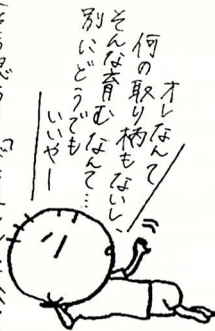 オレなんて
何の取り柄もないし、
そんな育むなんて…
別にどうでも
いいやー